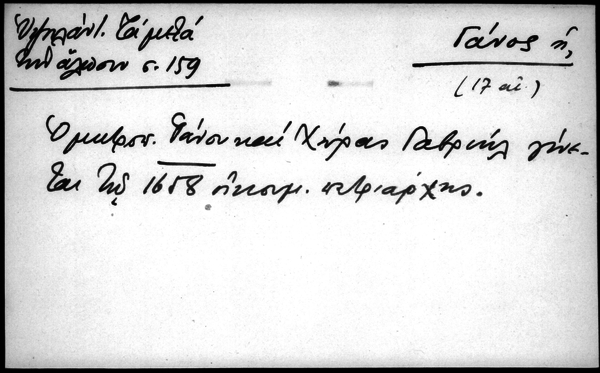 Ὑψηλάντ. Τά μετά
τήν ἅλωσιν σ. 159
Γάνος ἡ,
(17 αἰ.)
Ὁ μητροπ. Γάνου καί Χώρας Γαβριήλ γίνε-
ται τῷ 1658 οἰκουμ. πατριάρχης.